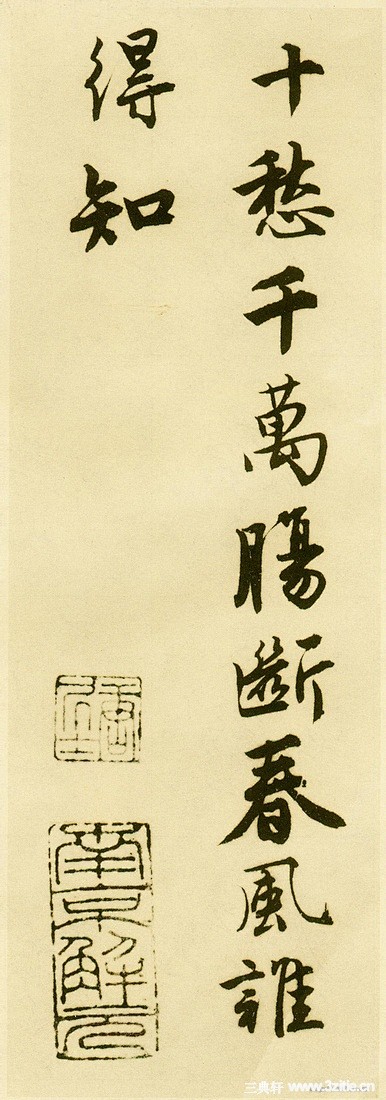 十愁千萬腸斷春風誰
得知
唐寅
南京解元
三典轩 www.3zitie.cn